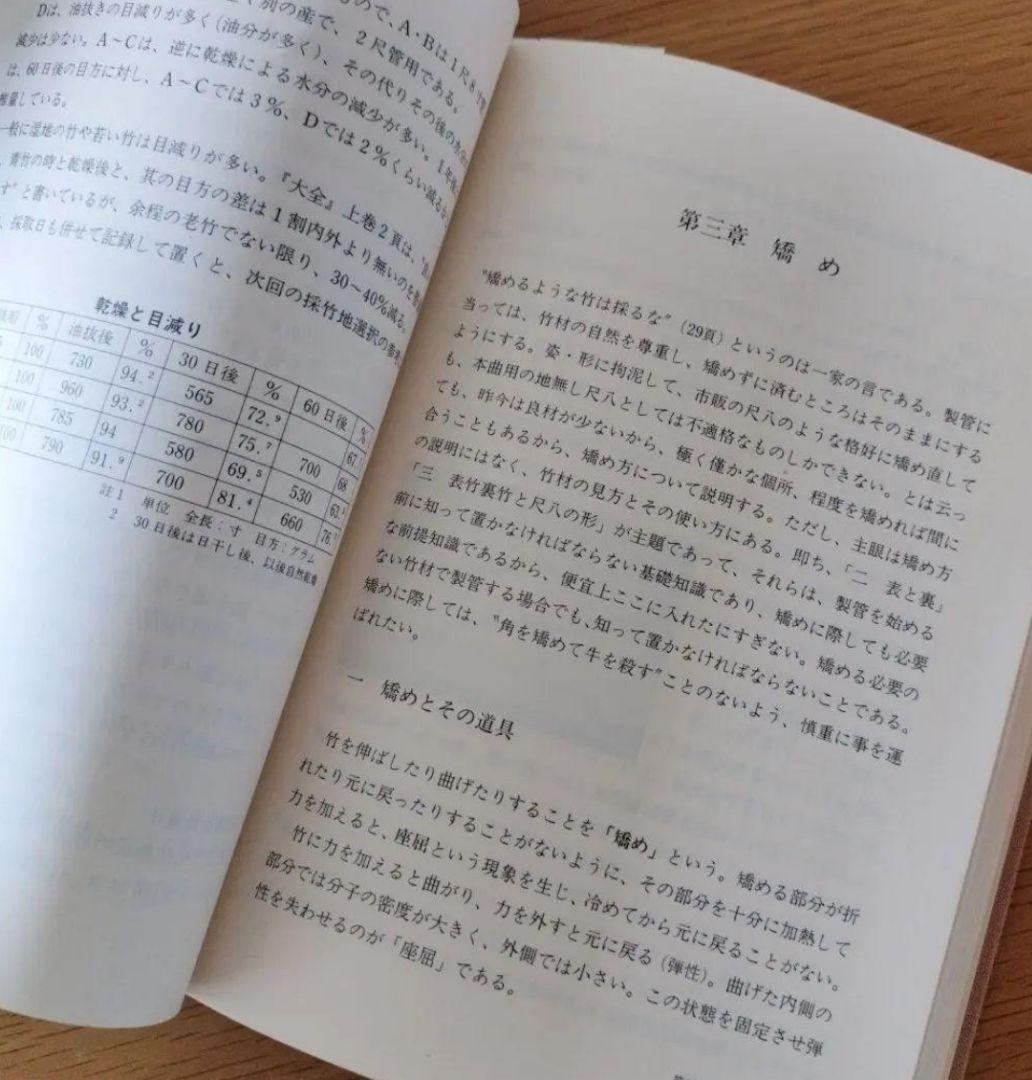 別の産で、2尺管用である。
Dは、油抜きの目減りが多く(油分が多く)、その代りその後の
減少は少ない。A~Cは、逆に乾燥による水分の減少が多い。
は、60日後の目方に対し、A~Cでは3%、Dでは2%くらい減る
軽量している。
一般に湿地の竹や若い竹は目減りが多い。『大全』上巻2頁は、
青竹の時と乾燥後と、其の目方の差は1割内外より無いのを
す"と書いているが、余程の老竹でない限り、30~40%減る。
採取日も併せて記録して置くと、次回の採竹地選択の参考
乾燥と目減り
% 油抜後 % 30日後 % 60日後 %
100 730 94.² 565 72.⁹
100 960 93.² 780 75.⁷ 700 68
100 785 94 580 69.⁵ 530
100 790 91.⁹ 700 81.⁴ 660 76.
註1 単位 全長:寸 目方:グラム
2 30日後は日干し後、以後自然乾燥
第三章 矯め
"矯めるような竹は採るな"(29頁)というのは一家の言である。製管に
当っては、竹材の自然を尊重し、矯めずに済むところはそのままにする
ようにする。姿・形に拘泥して、市販の尺八のような格好に矯め直して
も、本曲用の地無し尺八としては不適格なものしかできない。とは云っ
ても、昨今は良材が少ないから、極く僅かな個所、程度を矯めれば間に
合うこともあるから、矯め方について説明する。ただし、主眼は矯め方
の説明にはなく、竹材の見方とその使い方にある。即ち、「二 表と裏」
「三 表竹裏竹と尺八の形」が主題であって、それらは、製管を始める
前に知って置かなければならない基礎知識であり、矯めに際しても必要
な前提知識であるから、便宜上ここに入れたにすぎない。矯める必要の
ない竹材で製管する場合でも、知って置かなければならないことである。
矯めに際しては、"角を矯めて牛を殺す"ことのないよう、慎重に事を運
ばれたい。
一 矯めとその道具
竹を伸ばしたり曲げたりすることを「矯め」という。矯める部分が折
れたり元に戻ったりすることがないように、その部分を十分に加熱して
力を加えると、座屈という現象を生じ、冷めてから元に戻ることがない。
竹に力を加えると曲がり、力を外すと元に戻る(弾性)。曲げた内側の
部分では分子の密度が大きく、外側では小さい。この状態を固定させ弾
性を失わせるのが「座屈」である。